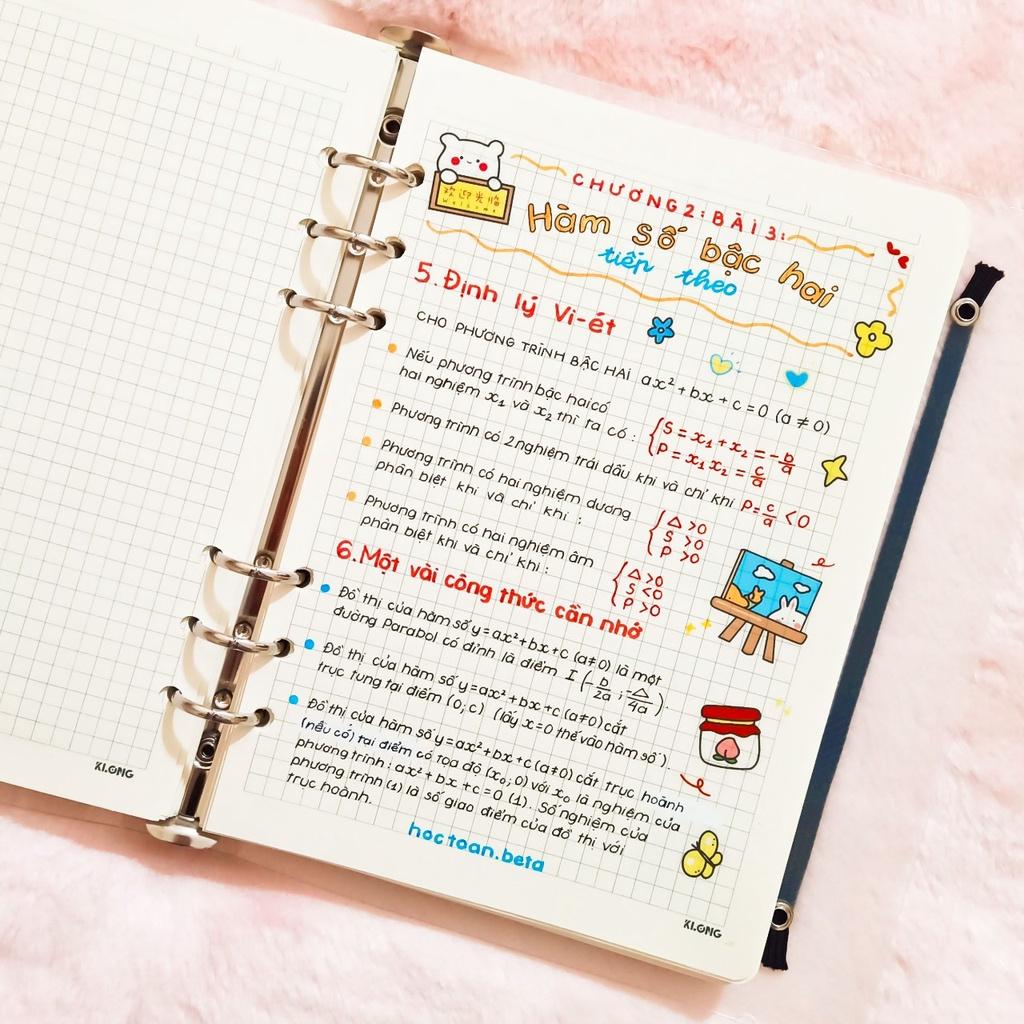 欢迎光临
Welcome
CHƯƠNG 2: BÀI 3:
Hàm số bậc hai
tiếp theo
5. Định lý Vi-ét
CHO PHƯƠNG TRÌNH BẬC HAI ax² + bx + c = 0 (a ≠ 0)
Nếu phương trình bậc hai có
hai nghiệm x₁ và x₂ thì ta có : { S = x₁ + x₂ = -b/a
P = x₁ x₂ = c/a
Phương trình có 2 nghiệm trái dấu khi và chỉ khi P = c/a < 0
Phương trình có hai nghiệm dương
phân biệt khi và chỉ khi : { Δ > 0
S > 0
P > 0
Phương trình có hai nghiệm âm
phân biệt khi và chỉ khi : { Δ > 0
S < 0
P > 0
6. Một vài công thức cần nhớ
Đồ thị của hàm số y = ax² + bx + c (a ≠ 0) là một
đường Parabol có đỉnh là điểm I (-b/2a ; -Δ/4a).
Đồ thị của hàm số y = ax² + bx + c (a ≠ 0) cắt
trục tung tại điểm (0; c) (lấy x = 0 thế vào hàm số).
Đồ thị của hàm số y = ax² + bx + c (a ≠ 0) cắt trục hoành
(nếu có) tại điểm có tọa độ (x₀; 0) với x₀ là nghiệm của
phương trình : ax² + bx + c = 0 (1). Số nghiệm của
phương trình (1) là số giao điểm của đồ thị với
trục hoành.
hoctoan.beta
KLONG
KLONG